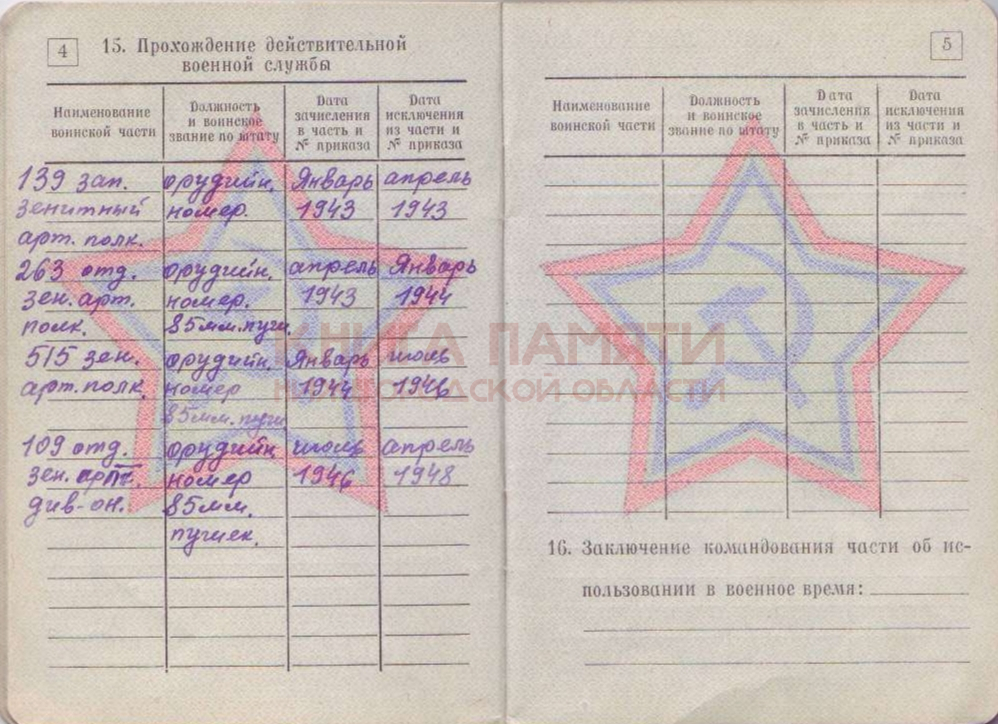 4
15. Прохождение действительной
военной службы
Наименование воинской части
Должность и воинское звание по штату
Дата зачисления в часть и № приказа
Дата исключения из части и № приказа
139 зап. орудийн. Январь апрель
зенитный номер. 1943 1943
арт. полк.
263 отд. орудийн. апрель Январь
зен. арт. номер. 1943 1944
полк. 85 мм. пуш.
515 зен. орудийн. Январь июль
арт. полк. номер 1944 1946
85 мм. пуш
109 отд. орудийн июль апрель
зен. арт. номер 1946 1948
див-он. 85 мм.
пушек.
5
Наименование воинской части
Должность и воинское звание по штату
Дата зачисления в часть и № приказа
Дата исключения из части и № приказа
16. Заключение командования части об ис-
пользовании в военное время:
КНИГА ПАМЯТИ
НИЖЕГОРОДСКОЙ ОБЛАСТИ